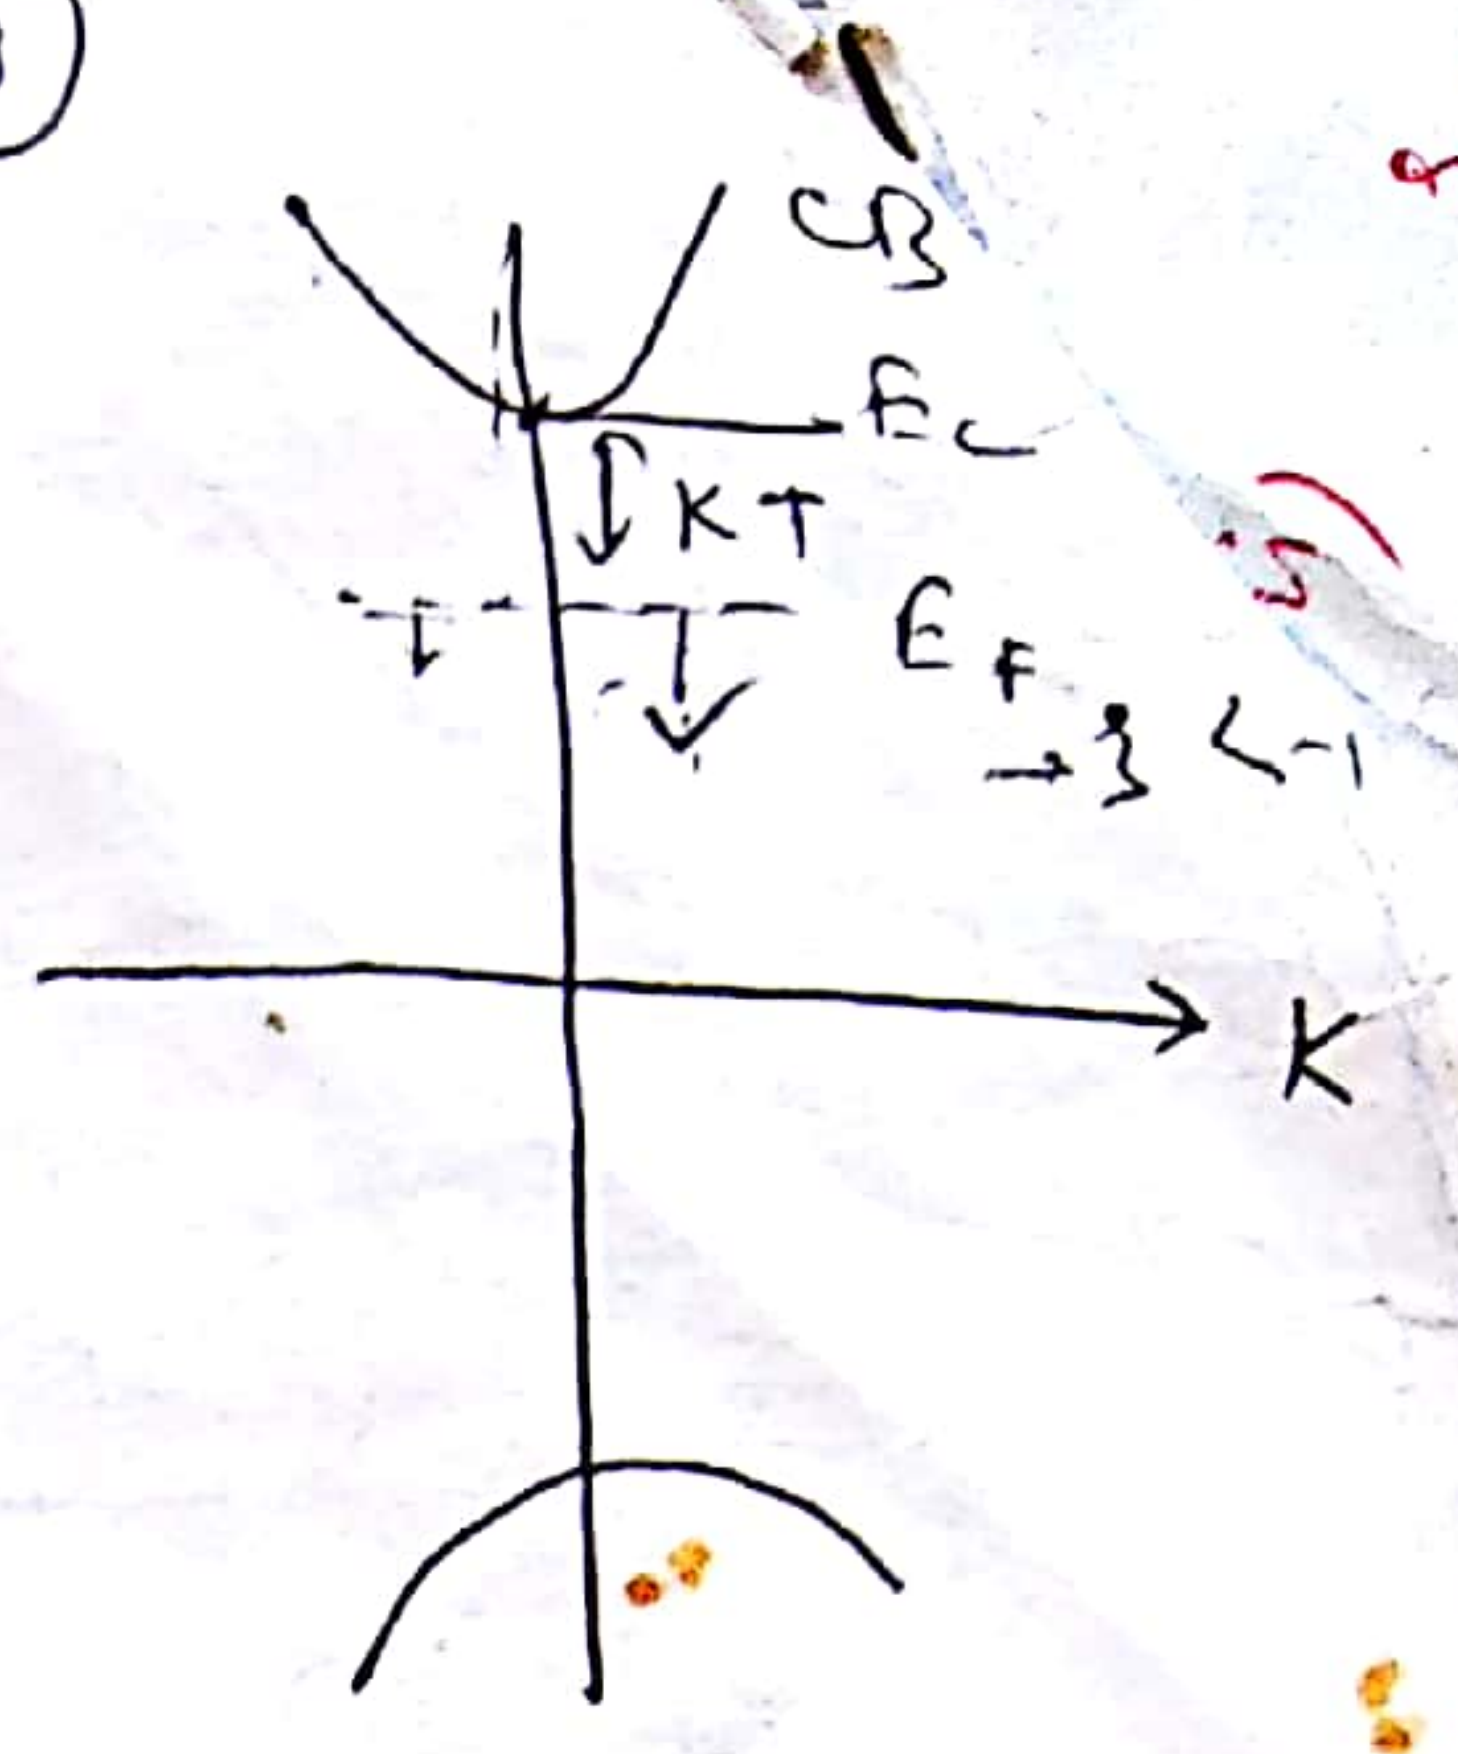 CB
Ec
KT
EF
→ ξ < -1
K